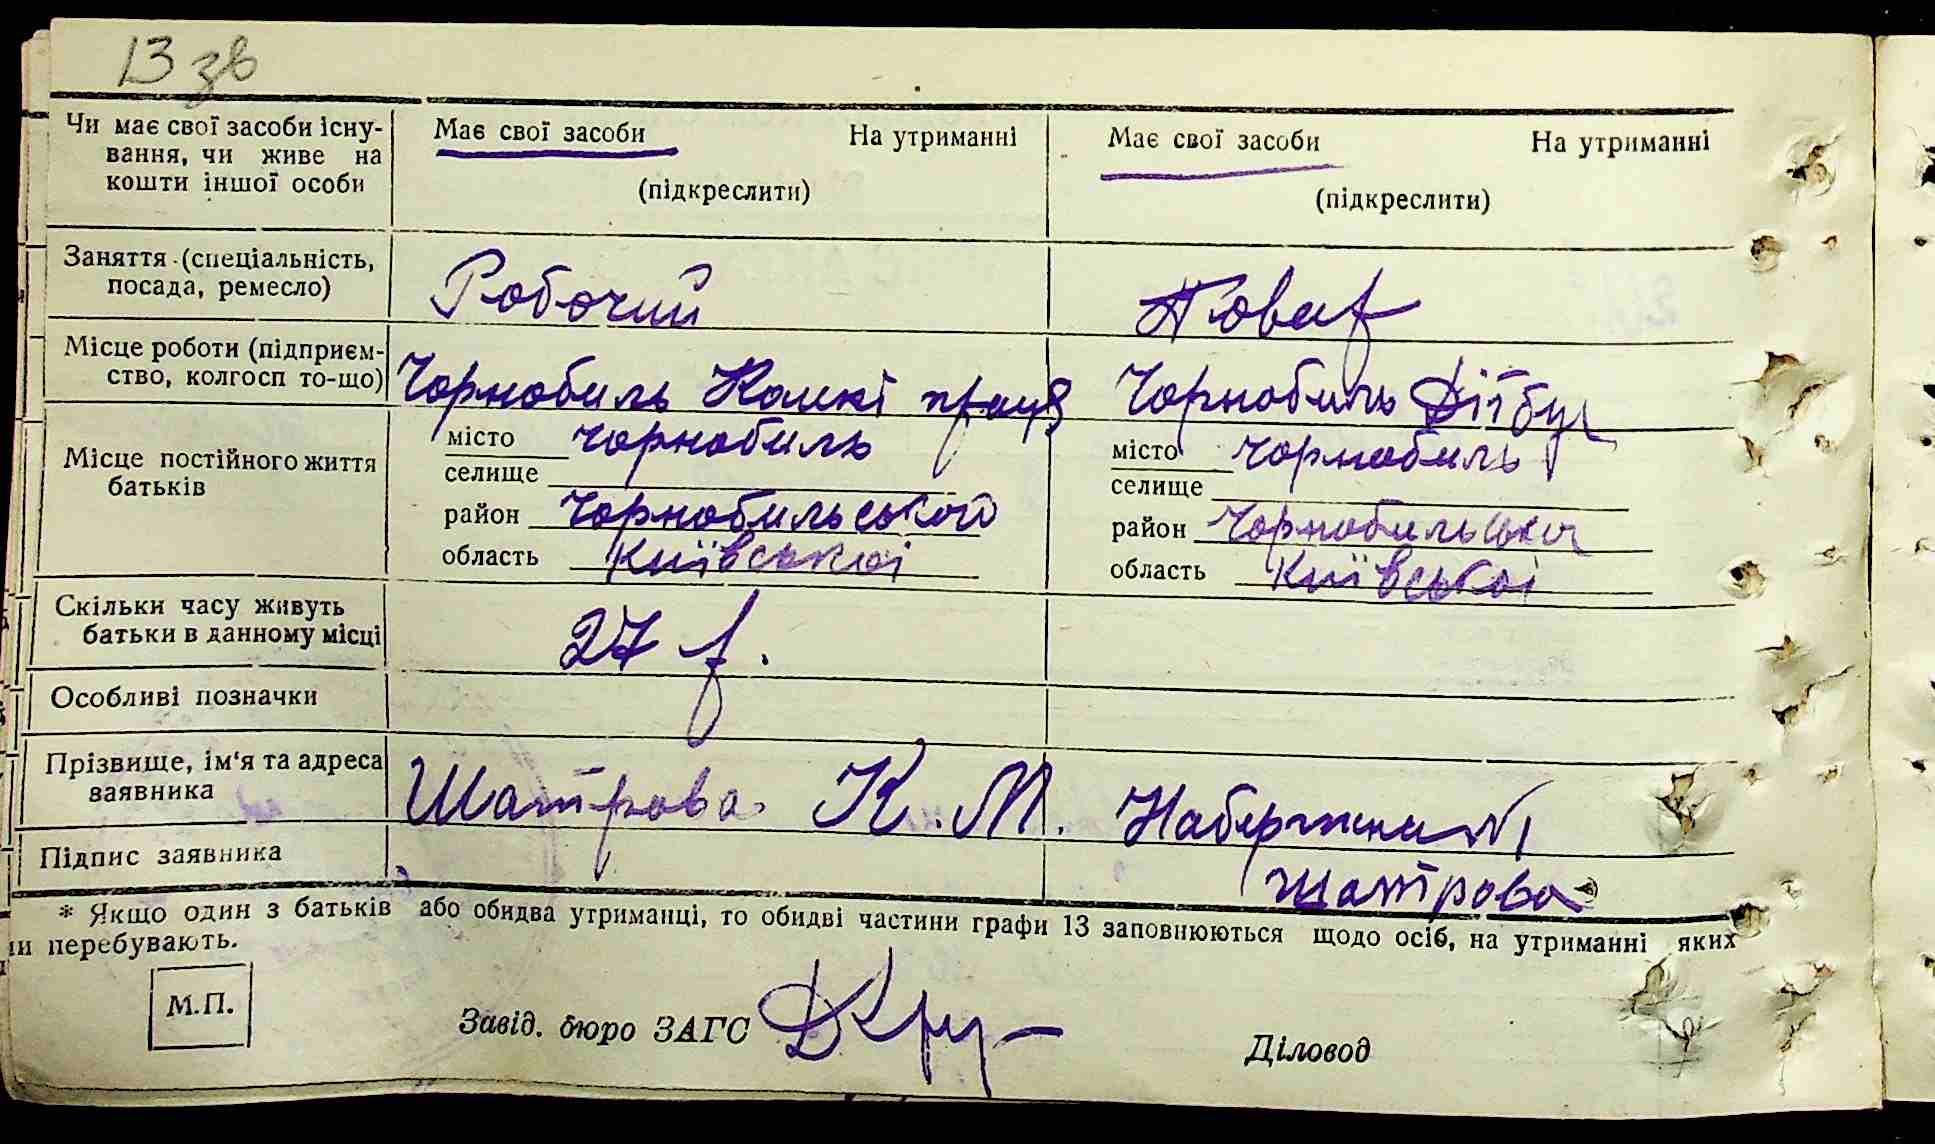 13 зв
Чи має свої засоби існу- Має свої засоби На утриманні Має свої засоби На утриманні
вання, чи живе на
кошти іншої особи (підкреслити) (підкреслити)
Заняття (спеціальність,
посада, ремесло) Робочий Повар
Місце роботи (підприєм-
ство, колгосп то-що) Чорнобиль праця Чорнобиль
Місце постійного життя місто Чорнобиль місто Чорнобиль
батьків селище селище
район Чорнобильського район
область Київської область Київської
Скільки часу живуть
батьки в данному місці 27 р.
Особливі позначки
Прізвище, ім'я та адреса
заявника Шатрова К. М.
Підпис заявника Шатрова
* Якщо один з батьків або обидва утриманці, то обидві частини графи 13 заповнюються щодо осіб, на утриманні яких
ни перебувають.
М.П.
Завід. бюро ЗАГС Діловод